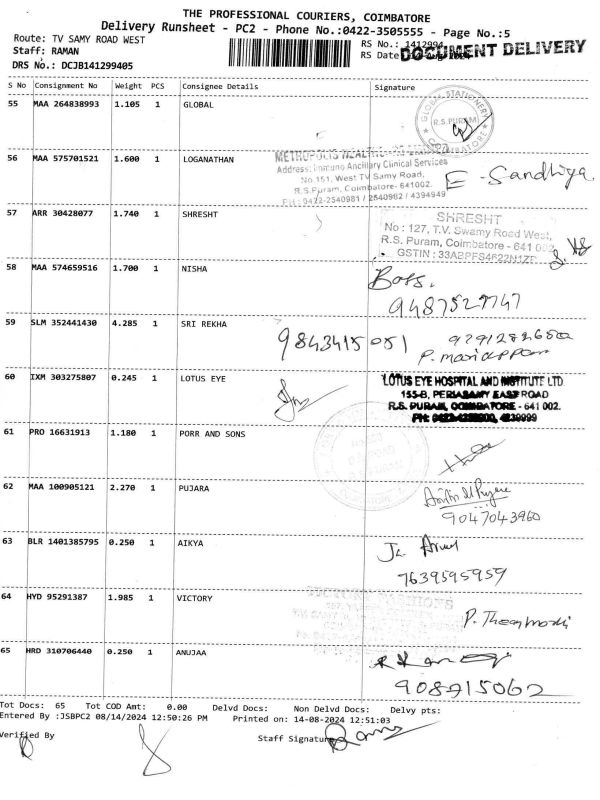 THE PROFESSIONAL COURIERS, COIMBATORE
Delivery Runsheet - PC2 - Phone No.:0422-3505555 - Page No.:5
Route: TV SAMY ROAD WEST
RS No.: 1412994
Staff: RAMAN
RS Date
DOCUMENT DELIVERY
DRS No.: DCJB141299405
S No Consignment No Weight PCS Consignee Details Signature
55 MAA 264838993 1.105 1 GLOBAL
GLOBAL STATIONERY
R.S.PURAM,
COIMBATORE
56 MAA 575701521 1.600 1 LOGANATHAN
METROPOLIS
Address: Immuno Ancillary Clinical Services
No 151, West TV Samy Road,
R.S.Puram, Coimbatore- 641002.
PH: 0422-2540981 / 2540982 / 4394949
E - Sandhiya
57 ARR 30428077 1.740 1 SHRESHT
SHRESHT
No : 127, T.V. Swamy Road West,
R.S. Puram, Coimbatore - 641 002
GSTIN :
58 MAA 574659516 1.700 1 NISHA
Boss.
59 SLM 352441430 4.285 1 SRI REKHA
9843415051
P. Mariappan
60 IXM 303275807 0.245 1 LOTUS EYE
LOTUS EYE HOSPITAL AND INSTITUTE LTD.
155-B, PERIASAMY EAST ROAD
R.S. PURAM, COIMBATORE - 641 002.
61 PRO 16631913 1.180 1 PORR AND SONS
62 MAA 100905121 2.270 1 PUJARA
9047043960
63 BLR 1401385795 0.250 1 AIKYA
7639595959
64 HYD 95291387 1.985 1 VICTORY
VICTORY FASHIONS
P. Thenmozhi
65 HRD 310706440 0.250 1 ANUJAA
908915062
Tot Docs: 65 Tot COD Amt: 0.00 Delvd Docs: Non Delvd Docs: Delvy pts:
Entered By :JSBPC2 08/14/2024 12:50:26 PM Printed on: 14-08-2024 12:51:03
Verified By
Staff Signature
Raman